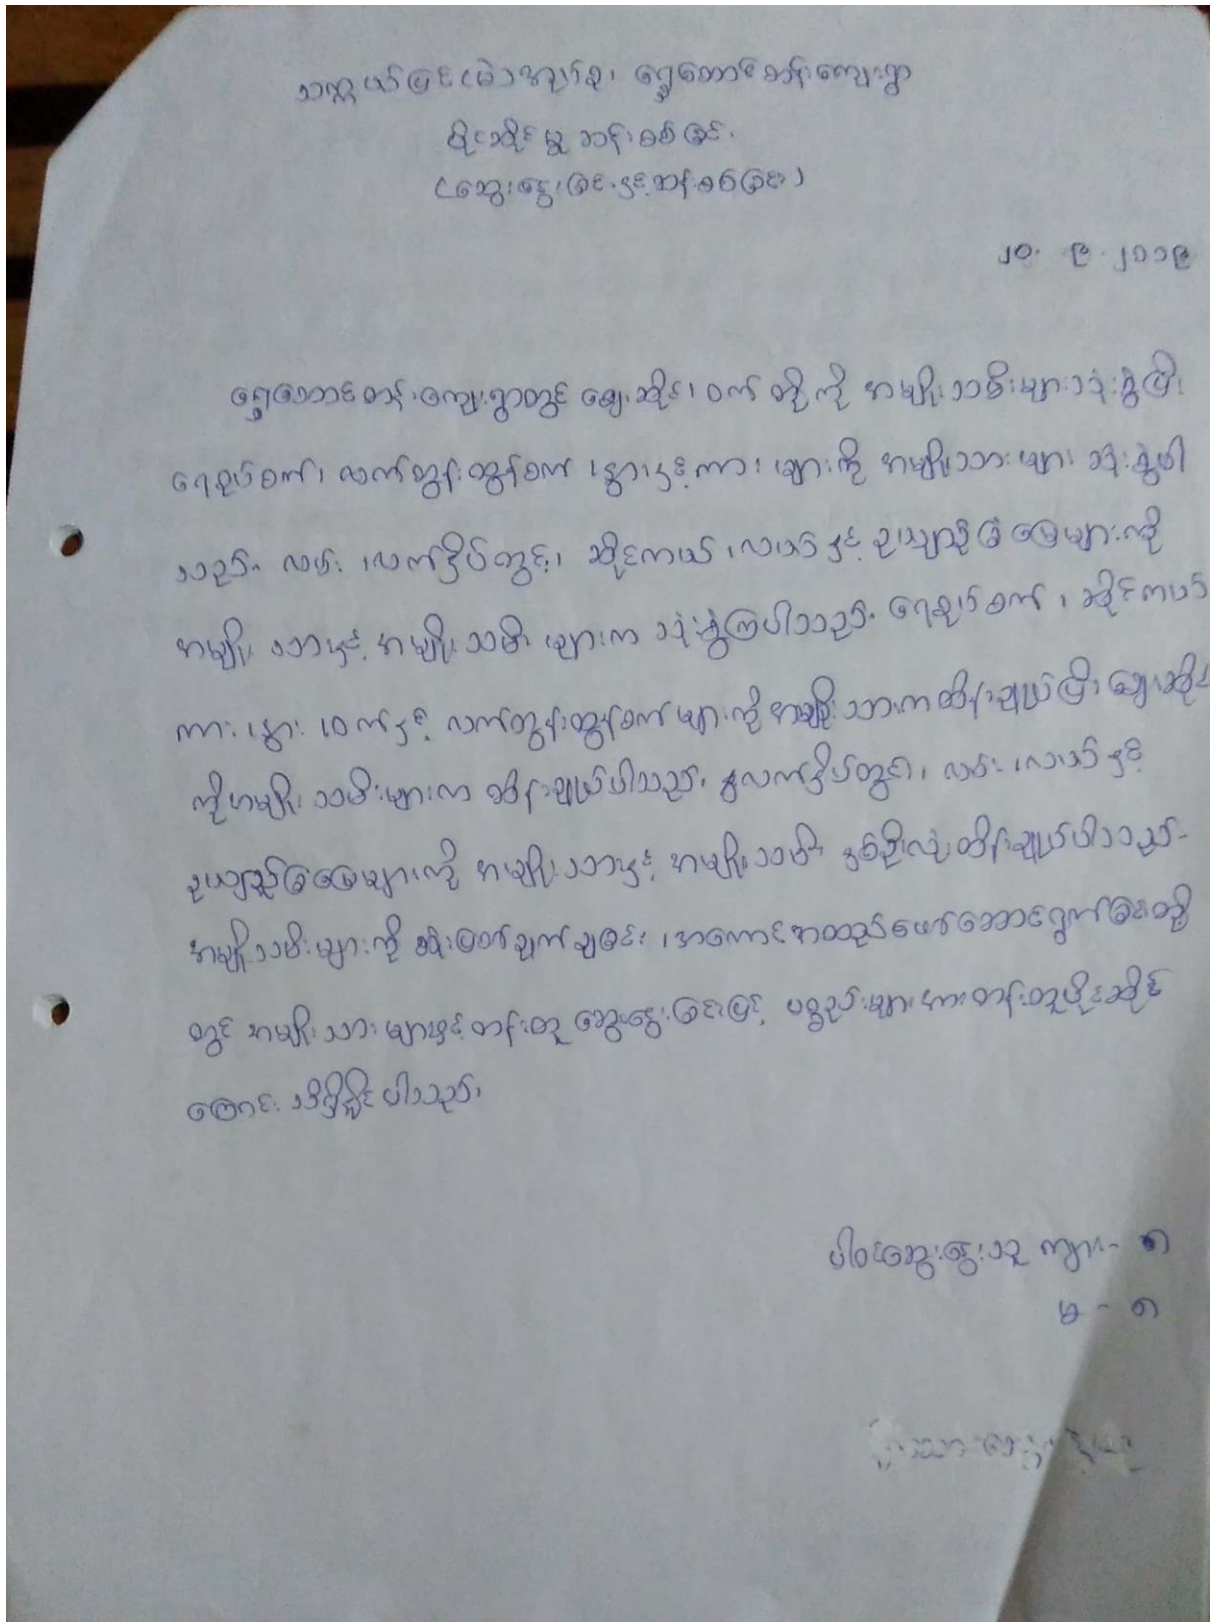 သက္ကယ်ပြင်(မဲ)အုပ်စု၊ ရွှေတောင်တန်းကျေးရွာ
ပိုင်ဆိုင်မှု ဆန်းစစ်ခြင်း
(ဆွေးနွေးခြင်းနှင့်ဆန်းစစ်ခြင်း)
၂၀. ၉. ၂၀၁၉
ရွှေတောင်တန်းကျေးရွာတွင် ဈေးဆိုင်၊ ဝက် တို့ကို အမျိုးသမီးများသုံးစွဲပြီး
ရေစုပ်စက်၊ လက်တွန်းထွန်စက် ၊နွားနှင့်ကား များကို အမျိုးသားများ သုံးစွဲပါ
သည်။ လမ်း ၊လက်နှိပ်တွင်း၊ ဆိုင်ကယ် ၊လယ်နှင့် ဥယျာဉ်ခြံမြေများကို
အမျိုးသားနှင့် အမျိုးသမီး များက သုံးစွဲကြပါသည်။ ရေစုပ်စက် ၊ ဆိုင်ကယ်
ကား ၊နွား ၊ဝက်နှင့် လက်တွန်းထွန်စက်များကို အမျိုးသားကထိန်းချုပ်ပြီး ဈေးဆိုင်
ကိုအမျိုးသမီးများက ထိန်းချုပ်ပါသည်။ လက်နှိပ်တွင်း၊ လမ်း ၊လယ်နှင့်
ဥယျာဉ်ခြံမြေများကို အမျိုးသားနှင့် အမျိုးသမီး နှစ်ဦးလုံးထိန်းချုပ်ပါသည်။
အမျိုးသမီးများကို ဆုံးဖြတ်ချက်ချခြင်း ၊အကောင်အထည်ဖော်ဆောင်ရွက်ခြင်းတို့
တွင် အမျိုးသားများနှင့်တန်းတူ ဆွေးနွေးခြင်းဖြင့် ပစ္စည်းများအားတန်းတူပိုင်ဆိုင်
ကြောင်း သိရှိနိုင်ပါသည်။
ပါဝင်ဆွေးနွေးသူ ကျား - ၈
မ - ၈